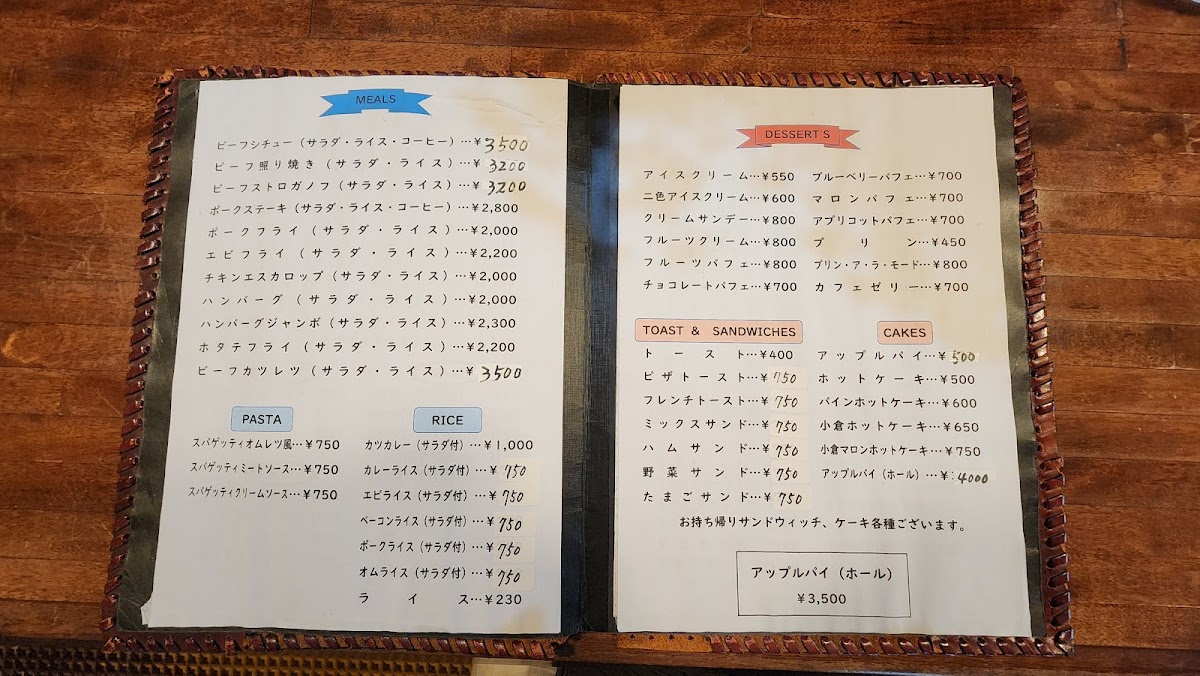 MEALS
ビーフシチュー(サラダ・ライス・コーヒー)…¥3500
ビーフ照り焼き(サラダ・ライス)…¥3200
ビーフストロガノフ(サラダ・ライス)…¥3200
ポークステーキ(サラダ・ライス・コーヒー)…¥2,800
ポークフライ(サラダ・ライス)…¥2,000
エビフライ(サラダ・ライス)…¥2,200
チキンエスカロップ(サラダ・ライス)…¥2,000
ハンバーグ(サラダ・ライス)…¥2,000
ハンバーグジャンボ(サラダ・ライス)…¥2,300
ホタテフライ(サラダ・ライス)…¥2,200
ビーフカツレツ(サラダ・ライス)…¥3500
PASTA
スパゲッティオムレツ風…¥750
スパゲッティミートソース…¥750
スパゲッティクリームソース…¥750
RICE
カツカレー(サラダ付)…¥1,000
カレーライス(サラダ付)…¥750
エビライス(サラダ付)…¥750
ベーコンライス(サラダ付)…¥750
ポークライス(サラダ付)…¥750
オムライス(サラダ付)…¥750
ライス…¥230
DESSERT'S
アイスクリーム…¥550
二色アイスクリーム…¥600
クリームサンデー…¥800
フルーツクリーム…¥800
フルーツパフェ…¥800
チョコレートパフェ…¥700
ブルーベリーパフェ…¥700
マロンパフェ…¥700
アプリコットパフェ…¥700
プリン…¥450
プリン・ア・ラ・モード…¥800
カフェゼリー…¥700
TOAST & SANDWICHES
トースト…¥400
ピザトースト…¥750
フレンチトースト…¥750
ミックスサンド…¥750
ハムサンド…¥750
野菜サンド…¥750
たまごサンド…¥750
CAKES
アップルパイ…¥500
ホットケーキ…¥500
パインホットケーキ…¥600
小倉ホットケーキ…¥650
小倉マロンホットケーキ…¥750
アップルパイ(ホール)…¥4000
お持ち帰りサンドウィッチ、ケーキ各種ございます。
アップルパイ(ホール)
¥3,500